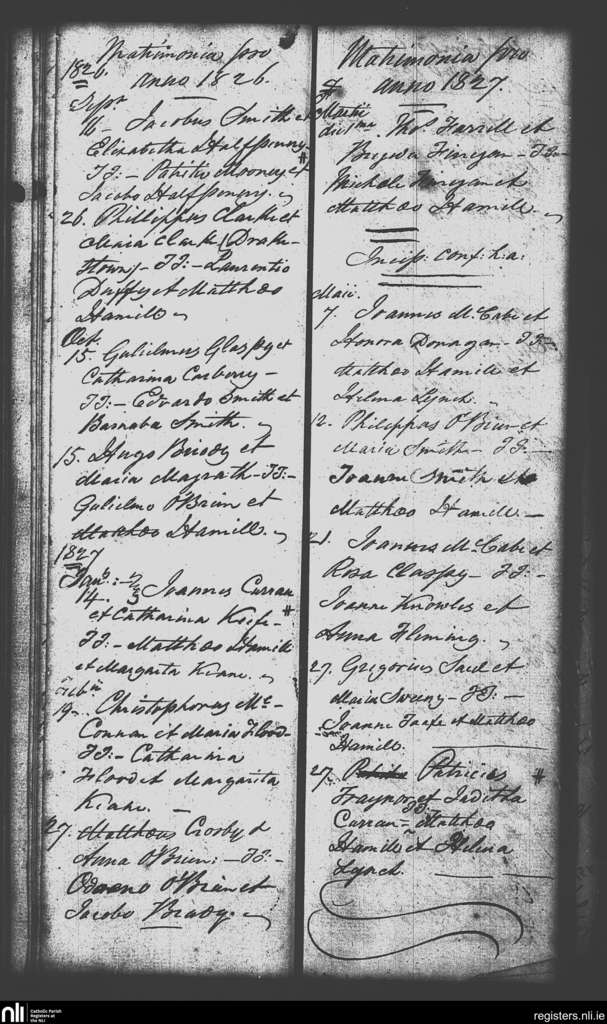 Matrimonia pro
anno 1826.
1826.
Sepr
16 - Jacobus Smith et
Elizabetha Halfpenny
TT: - Patritio Mooney et
Jacobo Halfpenny.
26. Philippus Clarke et
Maria Clarke (Drake-
stown) - TT: - Laurentio
Duffy et Matthæo
Hamill
Oct.
15. Gulielmus Glaspy et
Catharina Carberry -
TT: - Edvardo Smith et
Barnaba Smith.
15. Hugo Briody et
Maria Magrath - TT: -
Gulielmo O'Brien et
Matthæo Hamill.
1827
Janr:
14. Joannes Curran
et Catharina Keefe -
TT: - Matthæo Hamill
et Margarita Kiane.
Feb
19. Christophorus Mc-
Connan et Maria Flood -
TT: - Catharina
Flood et Margarita
Kiane.
27. Matthæus Crosby et
Anna O'Brien: - TT: -
O'Brien et
Jacobo Briody.
Matrimonia pro
anno 1827.
Martii
Thos. Farrell et
Brigida Finegan - TT: -
Michele Finegan et
Matthæo Hamill.
Incip: conf: h: a:
Maii.
7. Joannes McCabe et
Honora Donagan - TT: -
Matthæo Hamill et
Helena Lynch.
12. Philippus O'Brien et
Maria Smith - TT: -
Joanne Smith et
Matthæo Hamill -
21. Joannes McCabe et
Rosa Claspy - TT: -
Joanne Knowles et
Anna Fleming.
27. Gregorius et
Maria Sweeny - TT: -
Joanne Taafe et Matthæo
Hamill.
27. Patricius
Traynor et Juditha
Curran - TT: Matthæo
Hamill et Helena
Lynch.
nli
Catholic Parish
Registers at
the NLI
registers.nli.ie